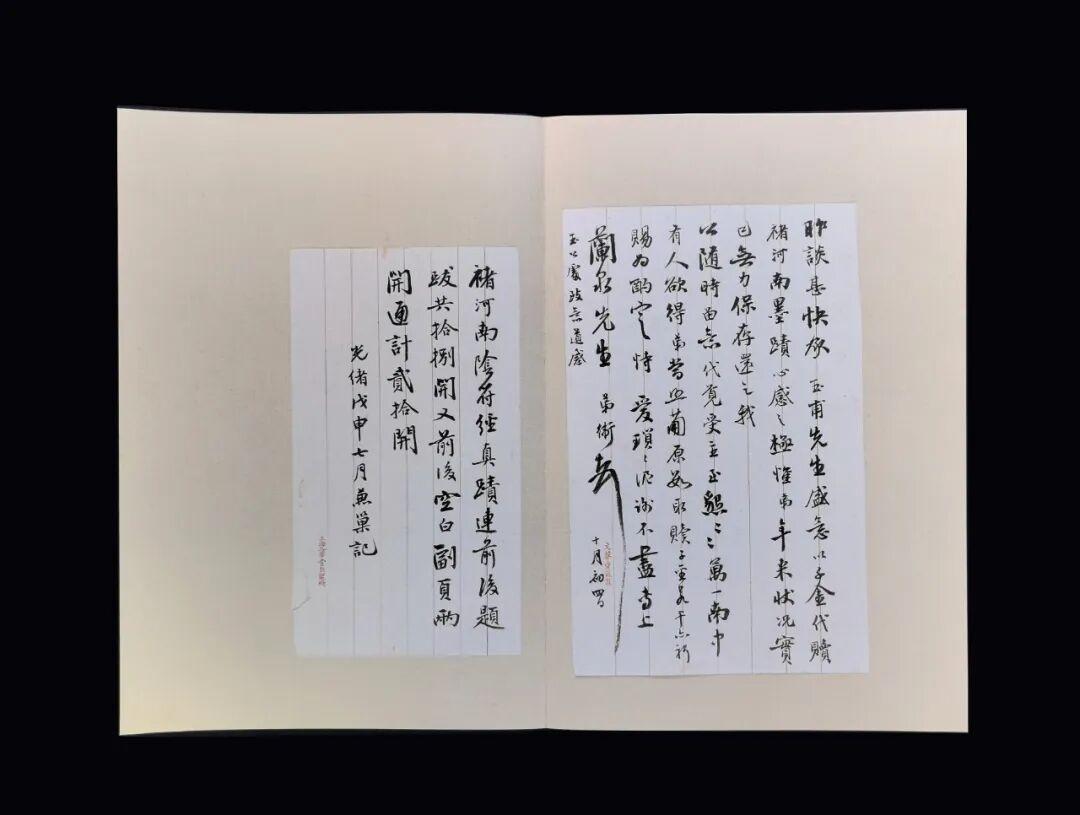 昨談甚快承 玉甫先生盛意以千金代贖
褚河南墨蹟心感之極惟弟年來狀況實
已無力保存還之我
公隨時留意代覓受主正懇懇萬一南中
有人欲得弟當照前原如取贖子金若干亦祈
賜為酌定恃愛瑣瑣泥謝不盡專上
蘭泉先生 弟衛 十月初四日
玉公處致意道感
褚河南陰符經真蹟連前後題
跋共拾捌開又前後空白副頁兩
開通計貳拾開
光緒戊申七月燕巢記